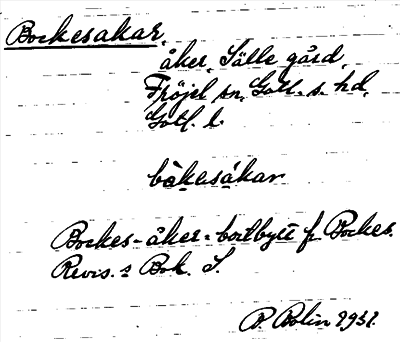 Bockesakar,
åker, Sälle gård,
Fröjel sn, Gotl. s. hd,
Gotl. l.
båkasåkar
Bockes-åker = bortbytt fr Bockes.
Revis. 2 Bok. S.
P. Bolin 1931.